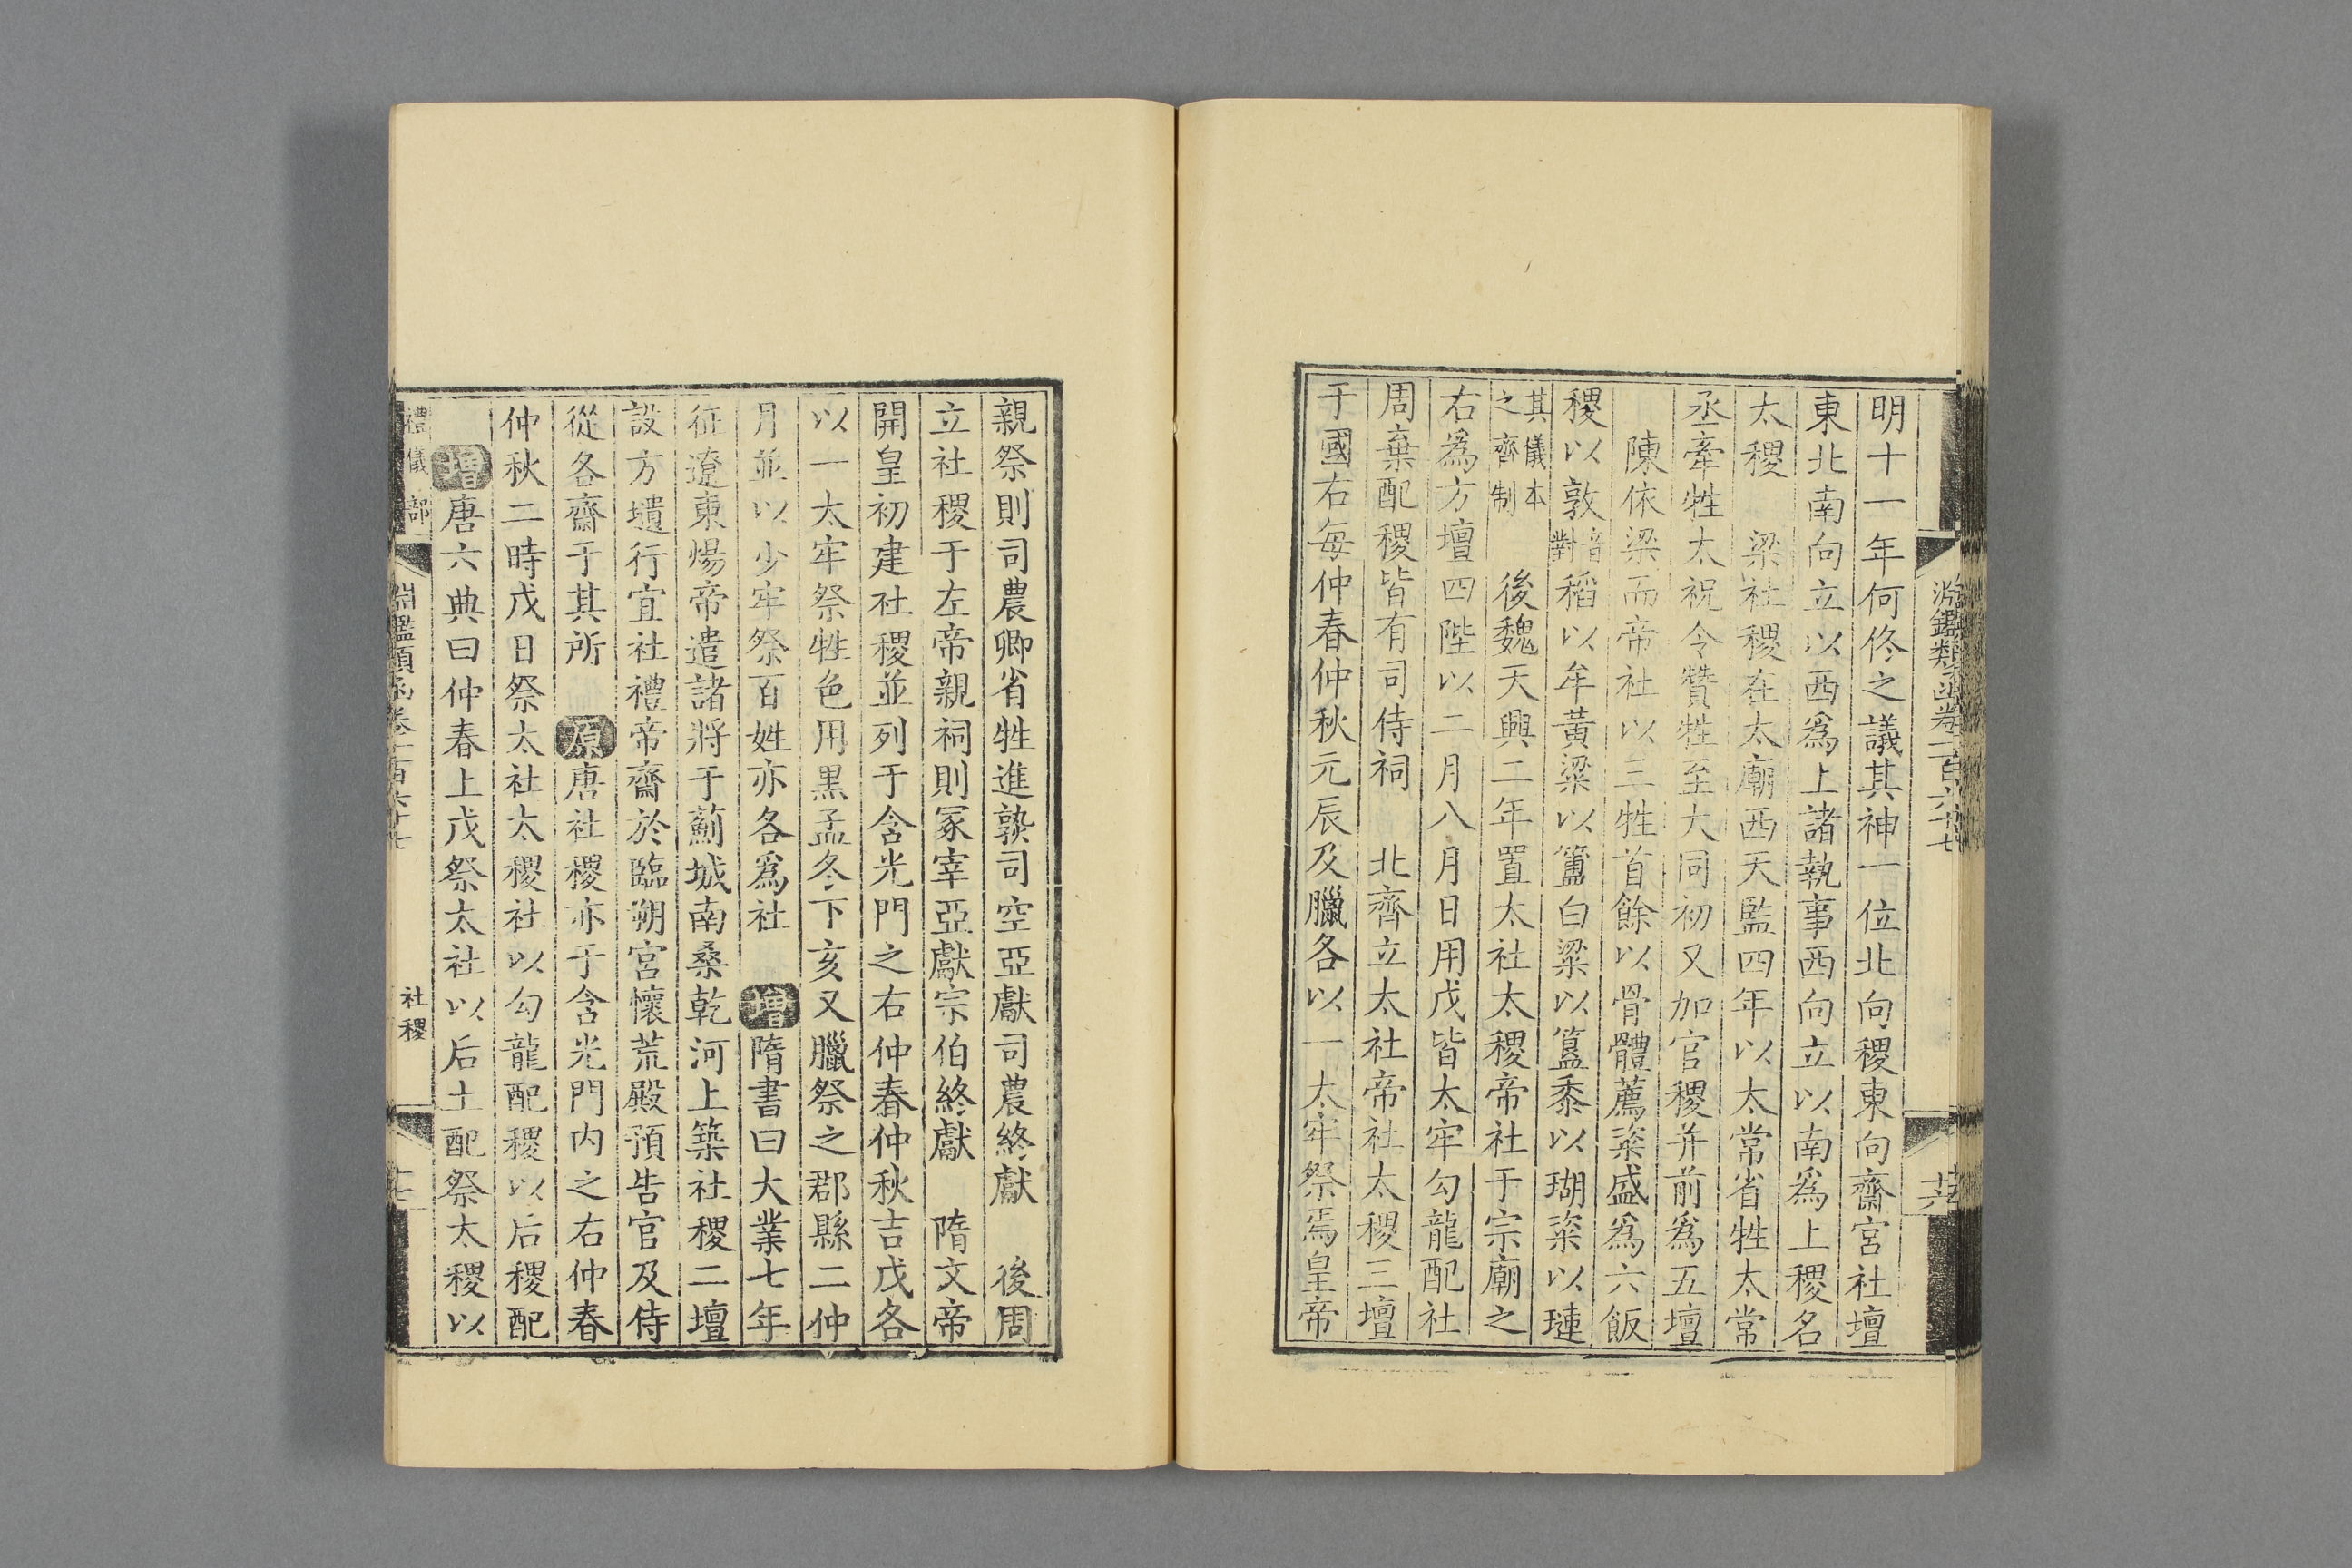 淵鑑類函卷一百六十七
明十一年何佟之議其神一位北向稷東向齋宮社壇
東北南向立以西爲上諸執事西向立以南爲上稷名
太稷　梁社稷在太廟西天監四年以太常省牲太常
丞牽牲太祝令贊牲至大同初又加官稷并前爲五壇
陳依梁而帝社以三牲首餘以骨體薦粢盛爲六飯
稷以敦音對稻以牟黃粱以簠白粱以簋黍以瑚粢以璉
其儀本之齊制　後魏天興二年置太社太稷帝社于宗廟之
右爲方壇四陛以二月八月日用戊皆太牢勾龍配社
周棄配稷皆有司侍祠　北齊立太社帝社太稷三壇
于國右每仲春仲秋元辰及臘各以一太牢祭焉皇帝
親祭則司農卿省牲進孰司空亞獻司農終獻　後周
立社稷于左帝親祠則冢宰亞獻宗伯終獻　隋文帝
開皇初建社稷並列于含光門之右仲春仲秋吉戊各
以一太牢祭牲色用黑孟冬下亥又臘祭之郡縣二仲
月並以少牢祭百姓亦各爲社　增隋書曰大業七年
征遼東煬帝遣諸將于薊城南桑乾河上築社稷二壇
設方壝行宜社禮帝齋於臨朔宮懷荒殿預告官及侍
從各齋于其所　原唐社稷亦于含光門內之右仲春
仲秋二時戊日祭太社太稷社以勾龍配稷以后稷配
增唐六典曰仲春上戊祭太社以后土配祭太稷以
禮儀部　淵鑑類函卷一百六十七　社稷